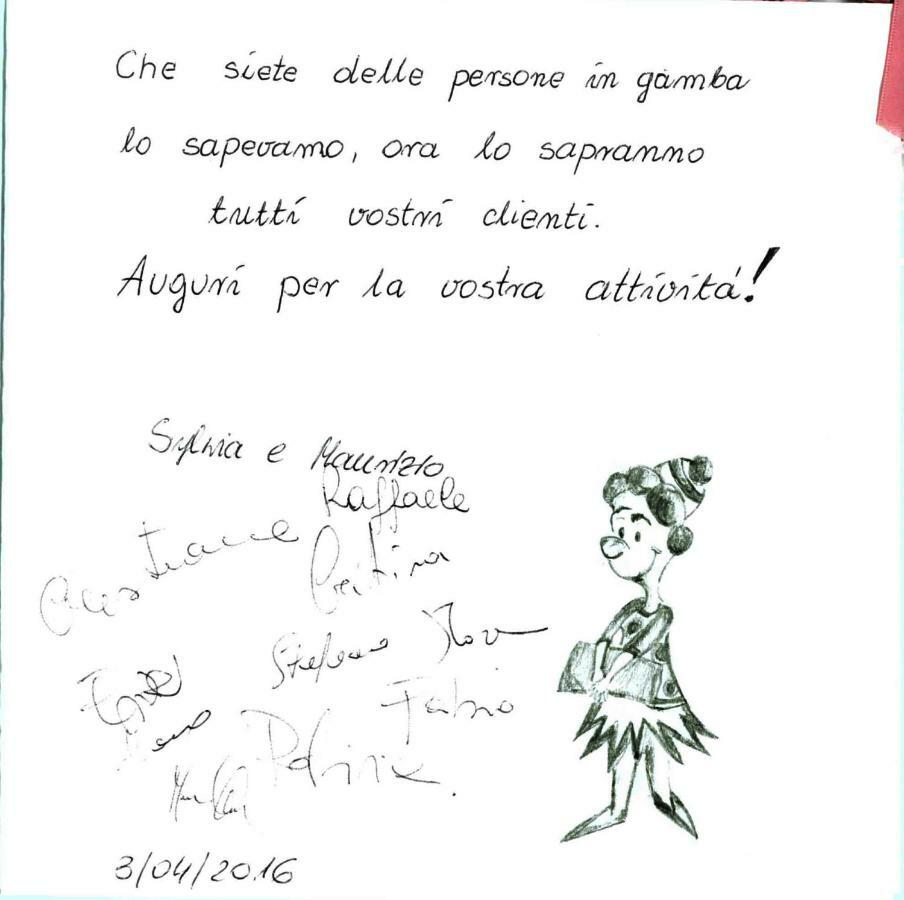 Che siete delle persone in gamba
lo sapevamo, ora lo sapranno
tutti vostri clienti.
Auguri per la vostra attività!
Sylvia e Maurizio
Raffaele
Cristina
Stefano
Fabio
3/04/2016